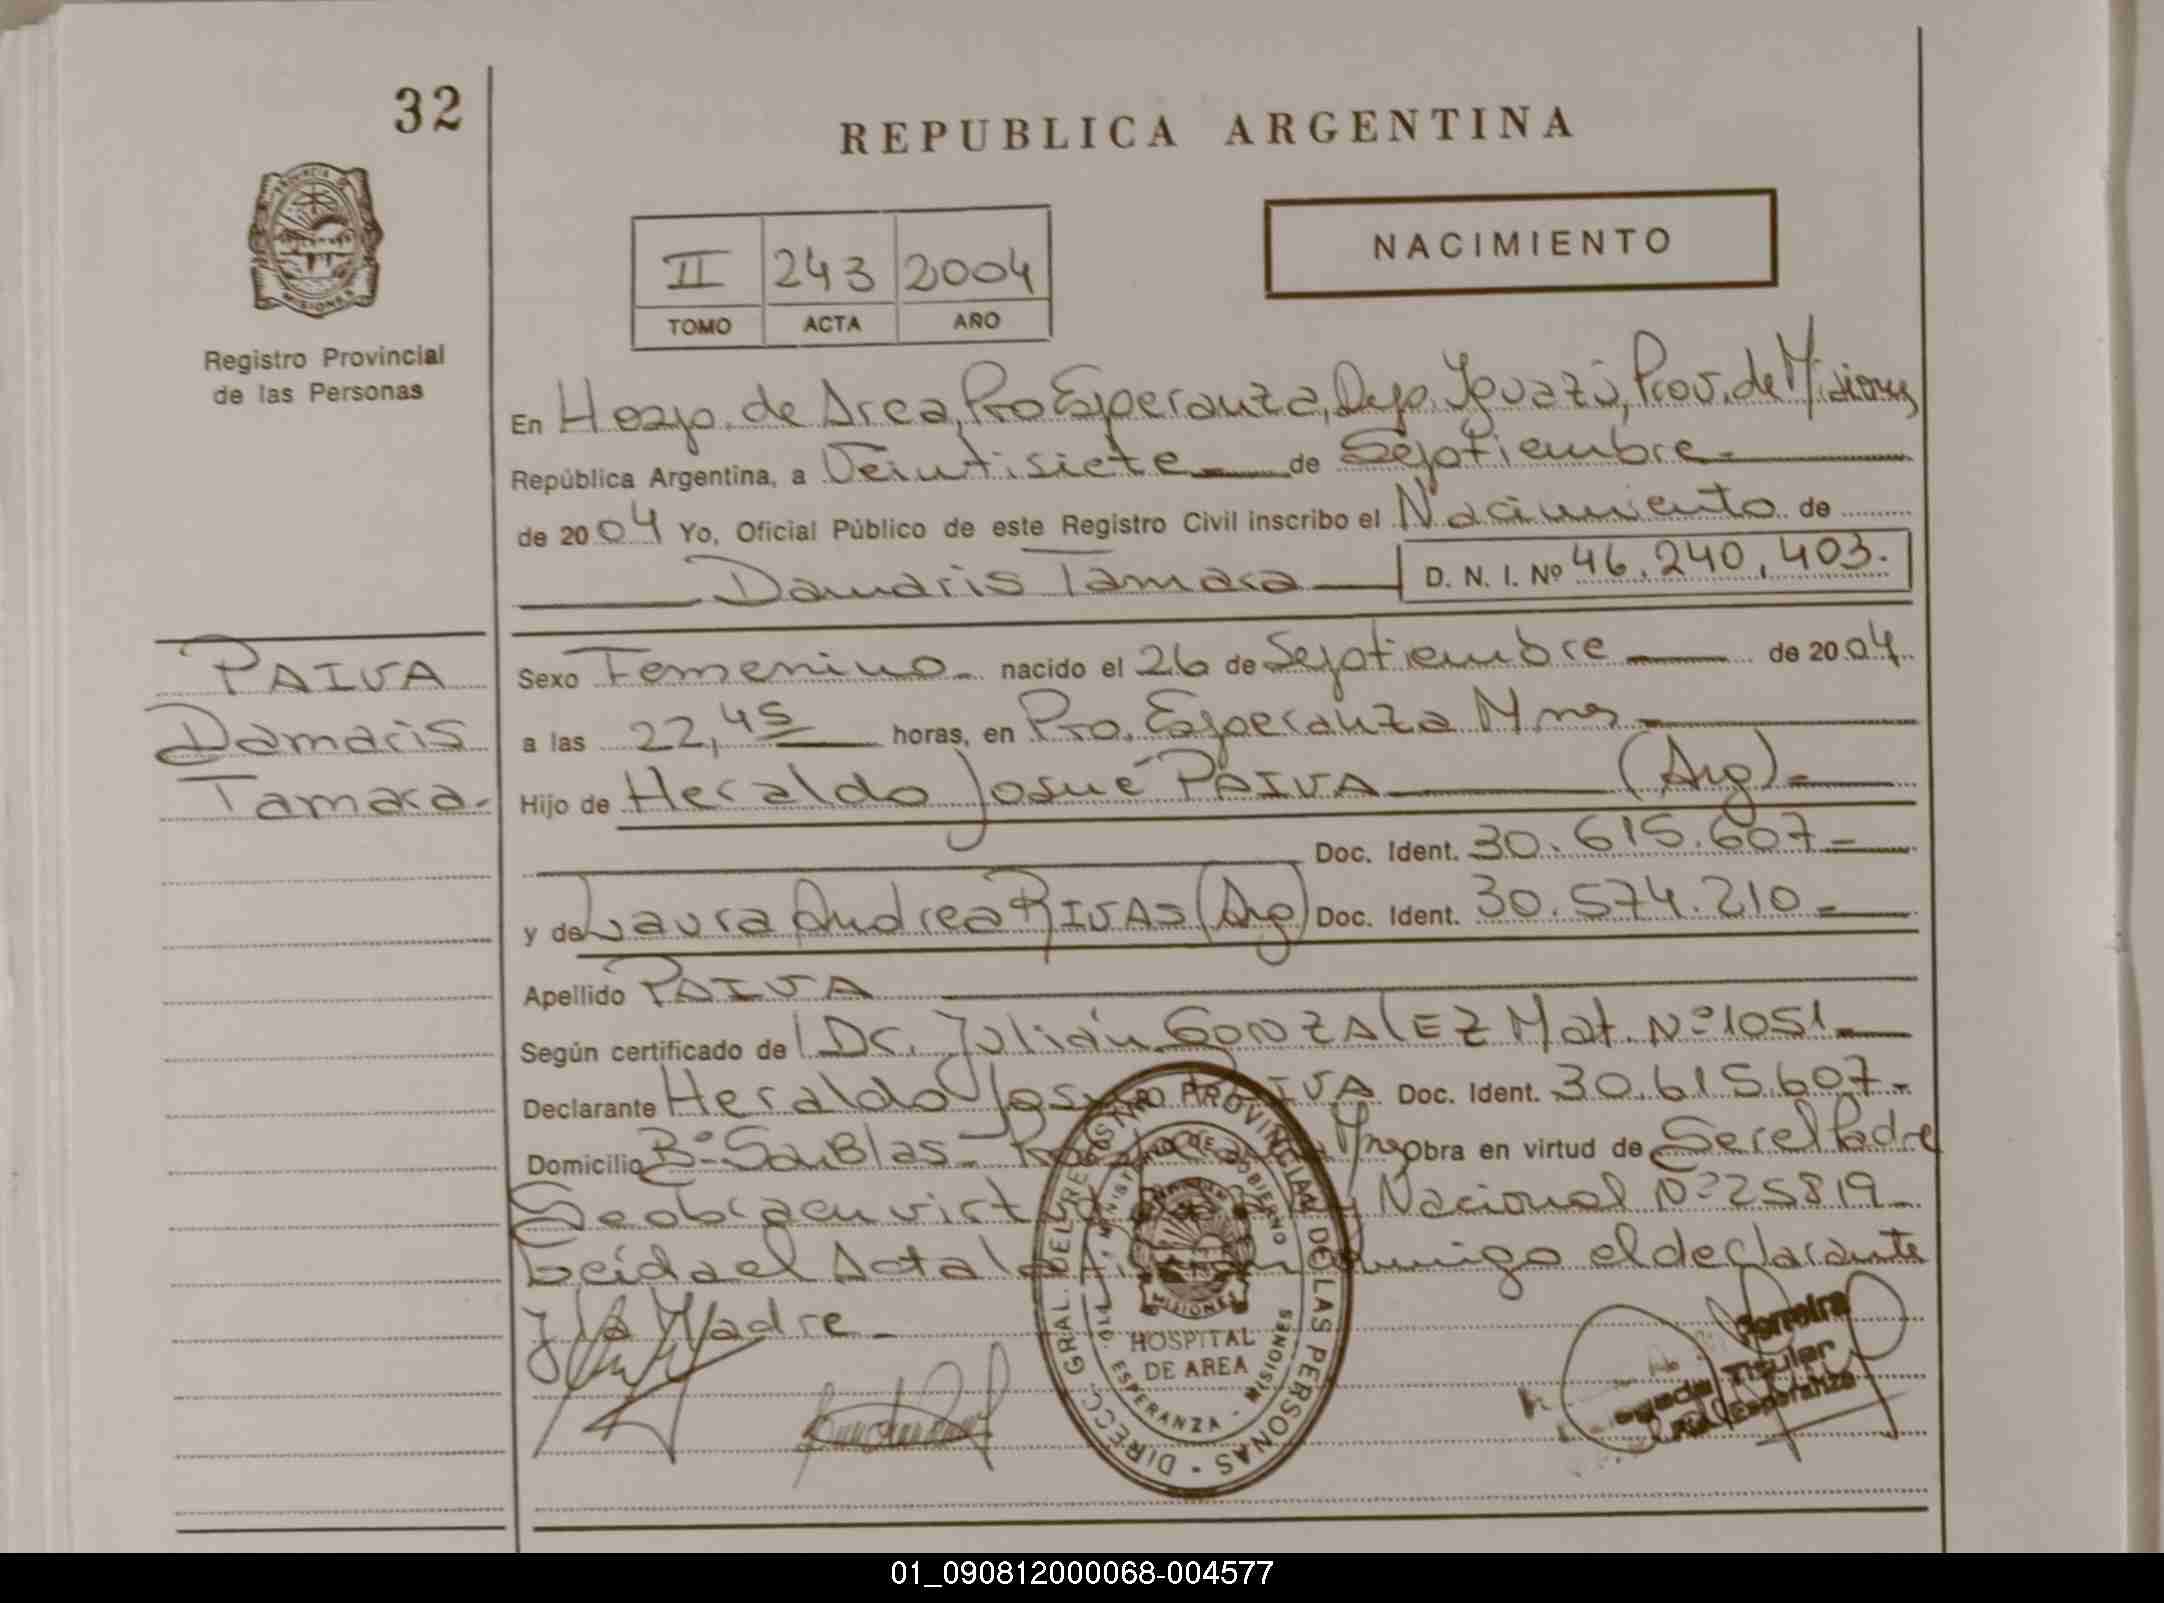 32
REPUBLICA ARGENTINA
NACIMIENTO
II 243 2004
TOMO ACTA AÑO
Registro Provincial
de las Personas
En Hosp. de Area, Pto Esperanza, Dep. Iguazú, Prov. de Misiones
República Argentina, a Veintisiete de Septiembre
de 2004 Yo, Oficial Público de este Registro Civil inscribo el Nacimiento de
Damaris Tamara D. N. I. Nº 46.240.403.
PAIVA
Damaris
Tamara.-
Sexo Femenino.- nacido el 26 de Septiembre de 2004
a las 22,45 horas, en Pto. Esperanza Mnes.-
Hijo de Heraldo Josué PAIVA (Arg).-
Doc. Ident. 30.615.607.-
y de Laura Andrea RIVAS (Arg) Doc. Ident. 30.574.210.-
Apellido PAIVA
Según certificado de Dr. Julián GONZALEZ Mat. Nº 1051.-
Declarante Heraldo Josué PAIVA Doc. Ident. 30.615.607.-
Domicilio Bº San Blas- Mnes obra en virtud de Ser el Padre
Se obra en Nacional Nº 25819.-
Leída el Acta la conmigo el declarante
y la Madre.-
DIRECC. GRAL. DEL REGISTRO PROVINCIAL DE LAS PERSONAS
MINISTERIO DE GOBIERNO
MISIONES
HOSPITAL
DE AREA
PTO. ESPERANZA - MISIONES
Ferreira
Titular
Pto. Esperanza
01_090812000068-004577